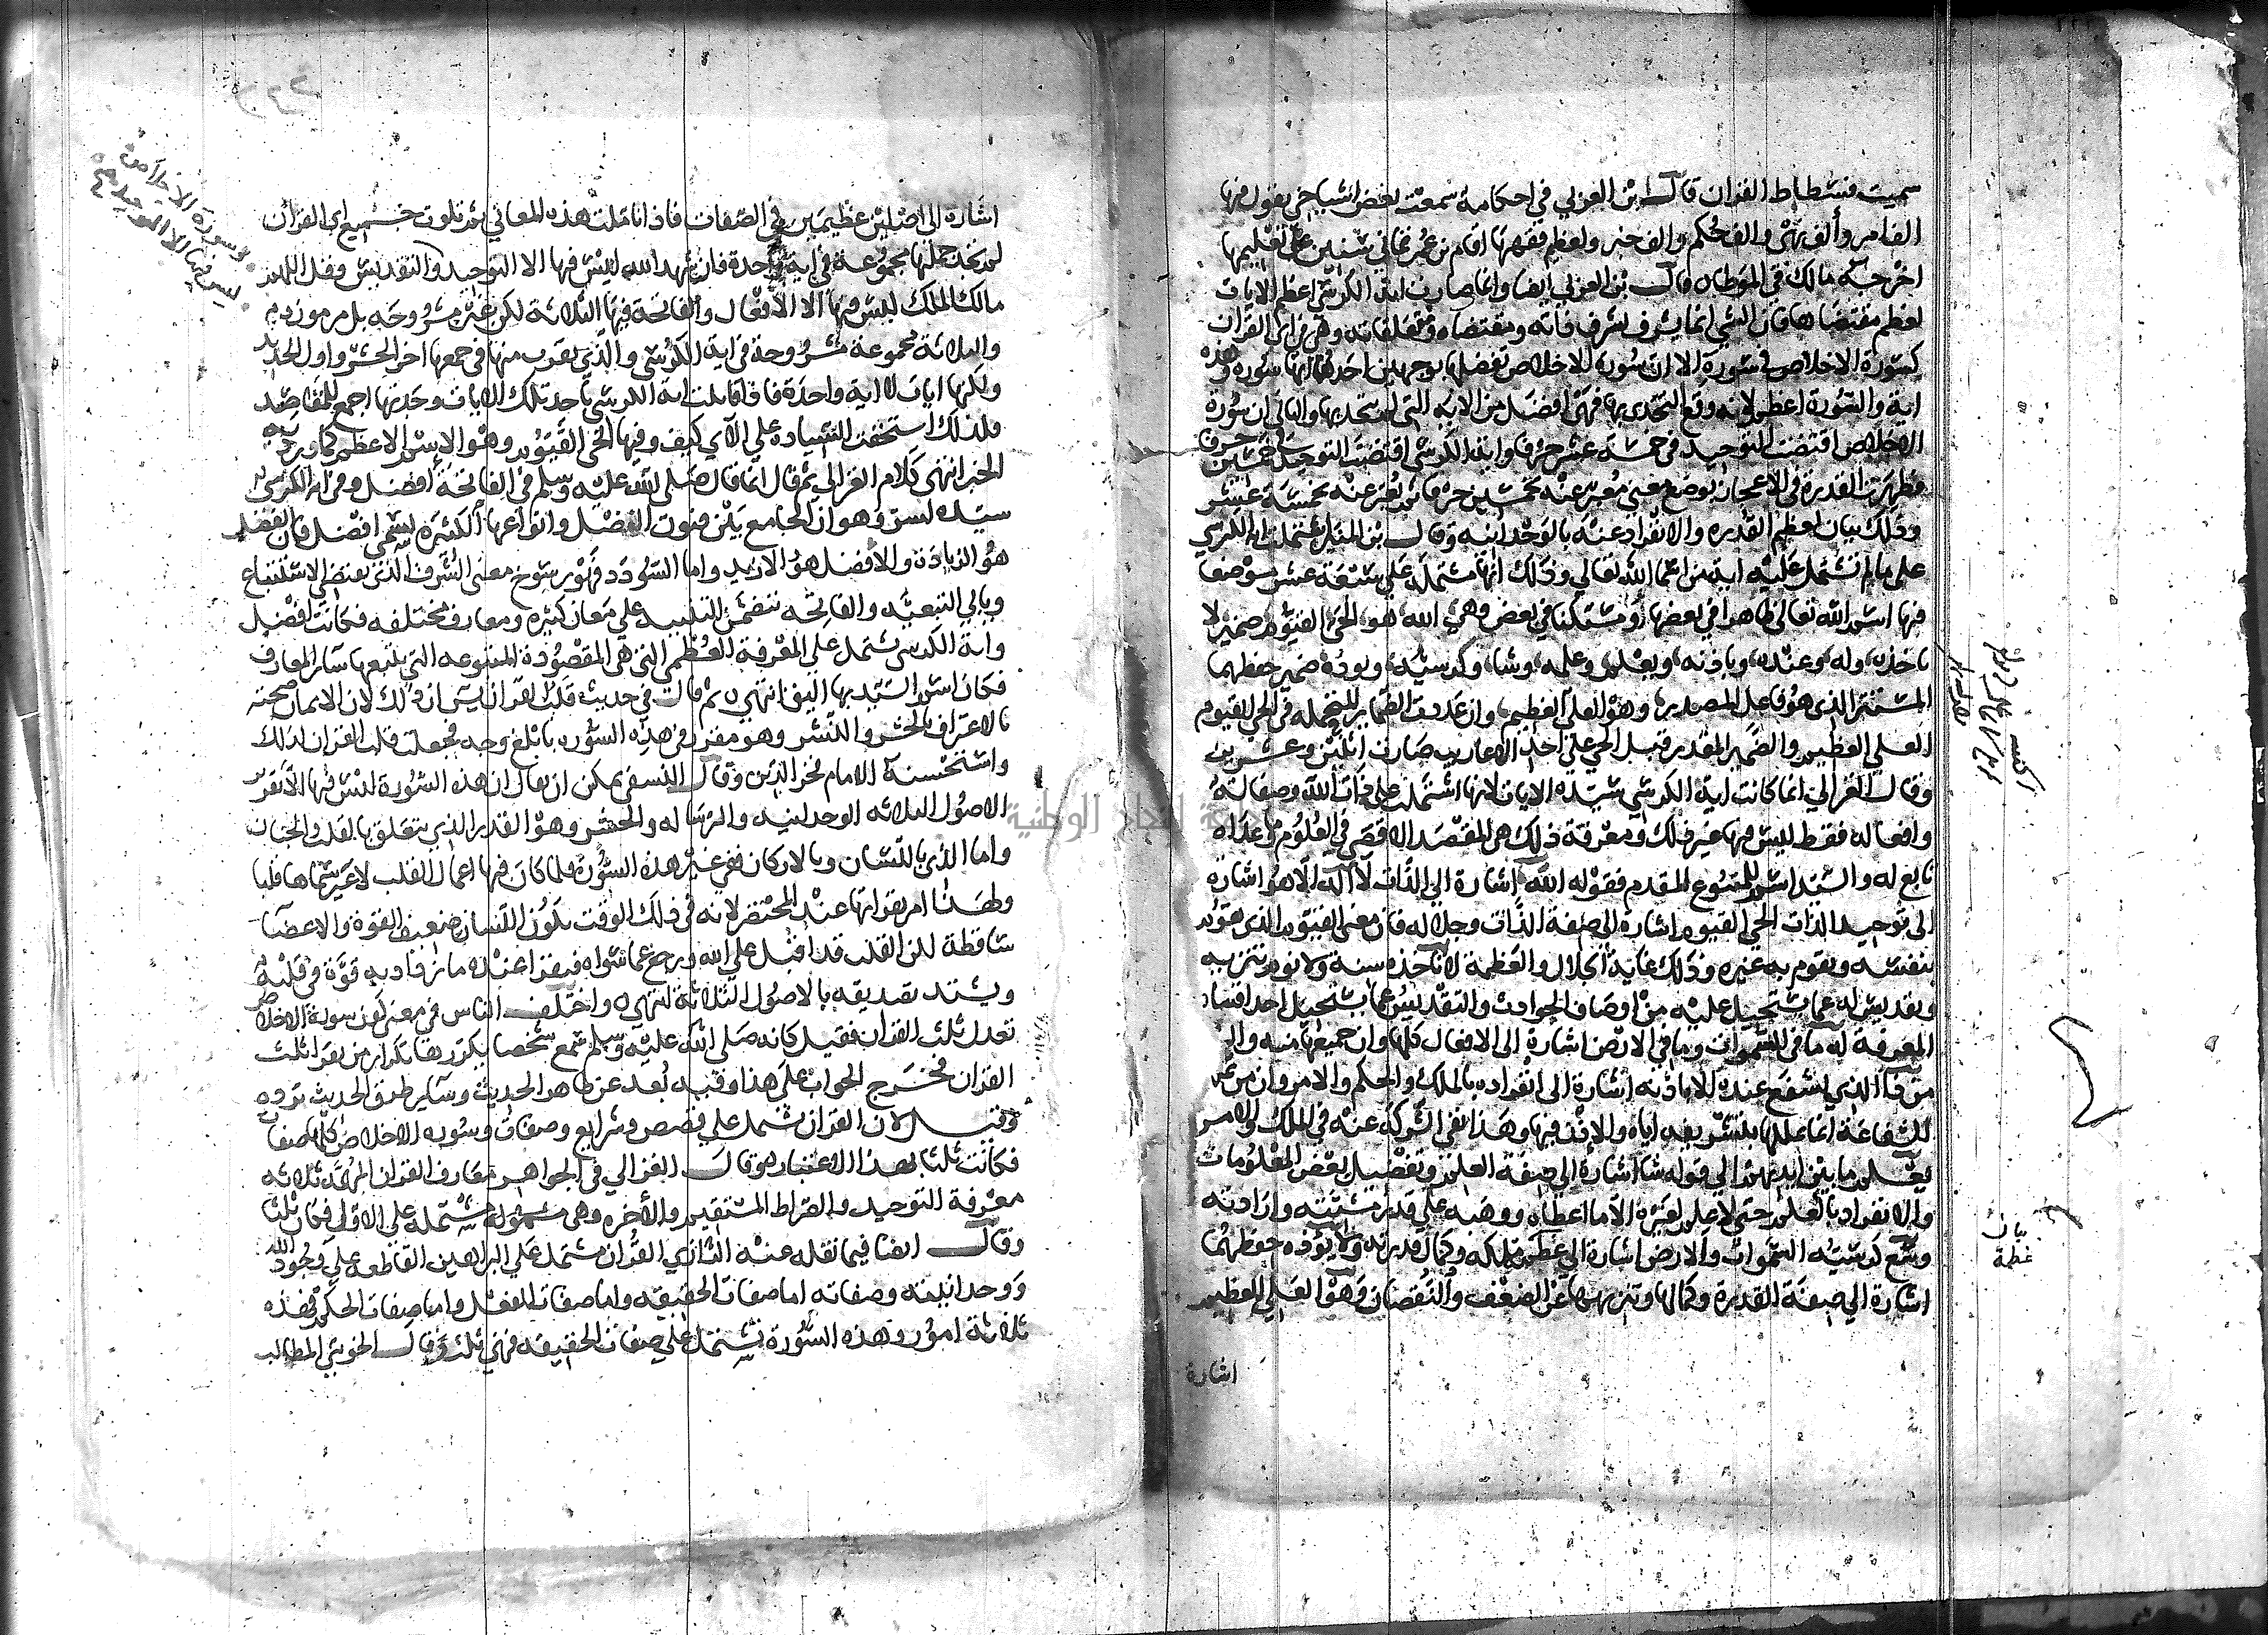 سميت فسطاط القران قال ابن العربي في احكامه سمعت بعض اشياخي يقول فيها
الف امر والف نهي والف حكم والف خبر ولعظم فقهها اقام بن عمر ثماني سنين علي تعليمها
اخرجه مالك في الموطا وقال بن العربي ايضا وانما صارت اية الكرسي اعظم الايات
لعظم مقتضاها فان الشي انما يشرف بشرف ذاته ومقتضاه ومتعلقاته وهي في اي القران
كسورة الاخلاص في سوره الا ان سورة الاخلاص تفضلها بوجهين احدهما انها سوره وهذه
اية والسورة اعظم لانه وقع التحدي بها فهي افضل من الاية التي لم يتحد بها والثاني ان سورة
الاخلاص اقتضت التوحيد في خمسة عشر حرفا واية الكرسي اقتضت التوحيد في خمسين حرفا
فظهرت القدرة في الاعجاز بوضع معني معبر عنه بخمسين حرفا ثم يعبر عنه بخمسة عشر
وذلك بيان لعظم القدره والانفراد عنه بالوحدانيه وقال بن المنير اشتملت اية الكرسي
علي ما لم تشتمل عليه اية من اسما الله تعالي وذلك انها مشتملة علي سبعة عشر موضعا
فيها اسم الله تعالي ظاهرا في بعضها ومستكنا في بعض وهي الله هو الحي القيوم ضمير لا
تاخذه وله وعنده وباذنه ويعلم وعلمه وشا وكرسيه ويوده ضمير حفظهما
المستتر الذي هو فاعل المصدر وهو العلي العظيم وان عددت الضماير المتحمله في الحي القيوم
العلي العظيم والضمير المقدر قبل الحي علي احد الاعاريب صارت اثنين وعشرين
وقال الغزالي انما كانت اية الكرسي سيدة الايات لانها اشتملت علي ذات الله وصفاته
وافعاله فقط ليس فيها غير ذلك ومعرفة ذلك هي المقصد الاقصي في العلوم وما عداه
تابع له والسيد اسم للمتبوع المقدم فقوله الله اشارة الي الذات لا اله الا هو اشارة
الي توحيد الذات الحي القيوم اشارة الي صفة الذات وجلاله فان معني القيوم الذي يقوم
بنفسه ويقوم به غيره وذلك غاية الجلال والعظمة لا تاخذه سنة ولا نوم تنزيه
وتقديس له عما يستحيل عليه من اوصاف الحوادث والتقديس عما يستحيل احد اقسام
المعرفة له ما في السموات وما في الارض اشارة الي الافعال كلها وان جميعها منه واليه
من ذا الذي يشفع عنده الا باذنه اشارة الي انفراده بالملك والحكم والامر وان من يملك
الشفاعة انما يملكها بتشريفه اياه والاذن فيها وهذا نفي الشركة عنه في الملك والامر
يعلم ما بين ايديهم الي قوله شا اشارة الي صفة العلم وتفضيل بعض المعلومات
والانفراد بالعلم حتي لا علم لغيره الا ما اعطاه ووهبه علي قدر مشيته وارادته
وسع كرسيه السموات والارض اشارة الي عظم ملكه وكمال قدرته ولا يؤده حفظهما
اشارة الي صفة القدرة وكمالها وتنزيهها عن الضعف والنقصان وهو العلي العظيم
اشارة
بيان
عظمة
اشارة الي اصلين عظيمين في الصفات فاذا تاملت هذه المعاني ثم تلوت جميع اي القران
لم تجد جملتها مجموعة في اية واحدة فان شهد الله ليس فيها الا التوحيد والتقديس وقل اللهم
مالك الملك ليس فيها الا الافعال والفاتحة فيها الثلاثة لكن غير مشروحه بل مرموزه
والثلاثة مجموعة مشروحة في اية الكرسي والذي يقرب منها في جمعها اخر الحشر واول الحديد
ولكنها ايات لا اية واحدة فاذا قابلت اية الكرسي باحد تلك الايات وجدتها اجمع للمقاصد
ولذلك استحقت السيادة علي الآي كيف وفيها الحي القيوم وهو الاسم الاعظم كما ورد به
الخبر انتهي كلام الغزالي ثم قال انما قال صلي الله عليه وسلم في الفاتحة افضل وفي اية الكرسي
سيدة لسر وهو ان الجامع بين فنون الفضل وانواعها الكثيرة يسمي افضل فان الفضل
هو الزيادة والافضل هو الازيد واما السودد فهو رسوخ معني الشرف الذي يقتضي الاستتباع
ويابي التبعيه والفاتحه تتضمن التنبيه علي معان كثيره ومعارف مختلفه فكانت افضل
واية الكرسي تشتمل علي المعرفة العظمي التي هي المقصودة المتبوعه التي يتبعها سائر المعارف
فكان اسم السيد بها اليق انتهي ثم قال في حديث قلب القران يس ان ذلك لان الايمان صحته
بالاعتراف بالحشر والنشر وهو مقرر في هذه السوره بابلغ وجه فجعلت قلب القران لذلك
واستحسنه الامام فخر الدين وقال النسفي يمكن ان يقال ان هذه السورة ليس فيها الا تقرير
الاصول الثلاثه الوحدانيه والرساله والحشر وهو القدر الذي يتعلق بالقلب والجنان
واما الذي باللسان وبالاركان ففي غير هذه السورة فلما كان فيها اعمال القلب لا غير سماها قلبا
ولهذا امر بقراتها عند المحتضر لانه في ذلك الوقت يكون اللسان ضعيف القوة والاعضا
ساقطة لكن القلب قد اقبل علي الله ورجع عما سواه فيقرا عنده ما يزداد به قوة في قلبه
ويشتد تصديقه بالاصول الثلاثة انتهي واختلف الناس في معني كون سورة الاخلاص
تعدل ثلث القران فقيل كانه صلي الله عليه وسلم سمع شخصا يكررها تكرار من يقرا ثلث
القران فخرج الجواب علي هذا وفيه بعد عن ظاهر الحديث وسائر طرق الحديث ترده
وقيل لان القران يشتمل علي قصص وشرايع وصفات وسوره الاخلاص كلها صفات
فكانت ثلثا بهذا الاعتبار وقال الغزالي في الجواهر معارف القران المهمة ثلاثه
معرفة التوحيد والصراط المستقيم والأخره وهي مشتمله علي الاول فكان ثلثا
وقال ايضا فيما نقله عنه الرازي القران مشتمل علي البراهين القاطعه علي وجود الله
ووحدانيته وصفاته اما صفات الحقيقه واما صفات الفعل واما صفات الحكم فهذه
ثلاثة امور وهذه السورة تشتمل علي صفات الحقيقه فهي ثلث وقال الخويي المطالب
وسورة الاخلاص
ليس فيها الا التوحيد